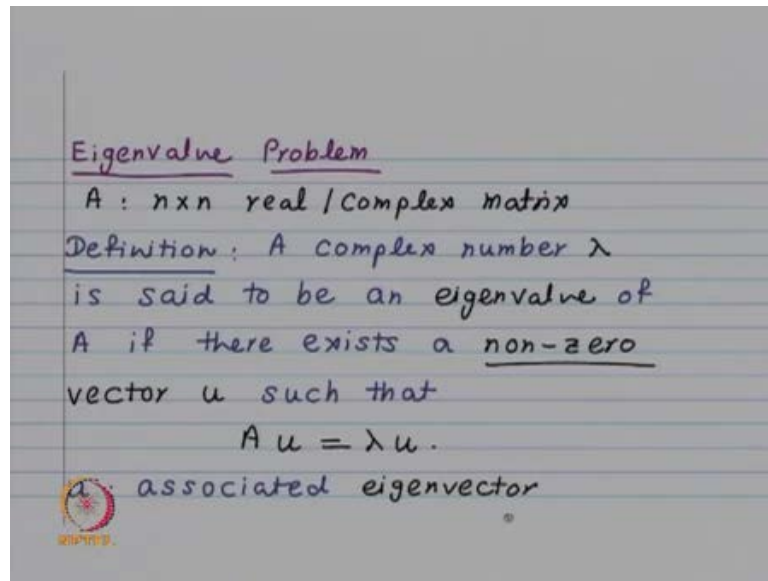 Eigenvalue Problem
A : n×n real / complex matrix
Definition : A complex number λ
is said to be an eigenvalue of
A if there exists a non-zero
vector u such that
A u = λ u .
: associated eigenvector
NPTEL